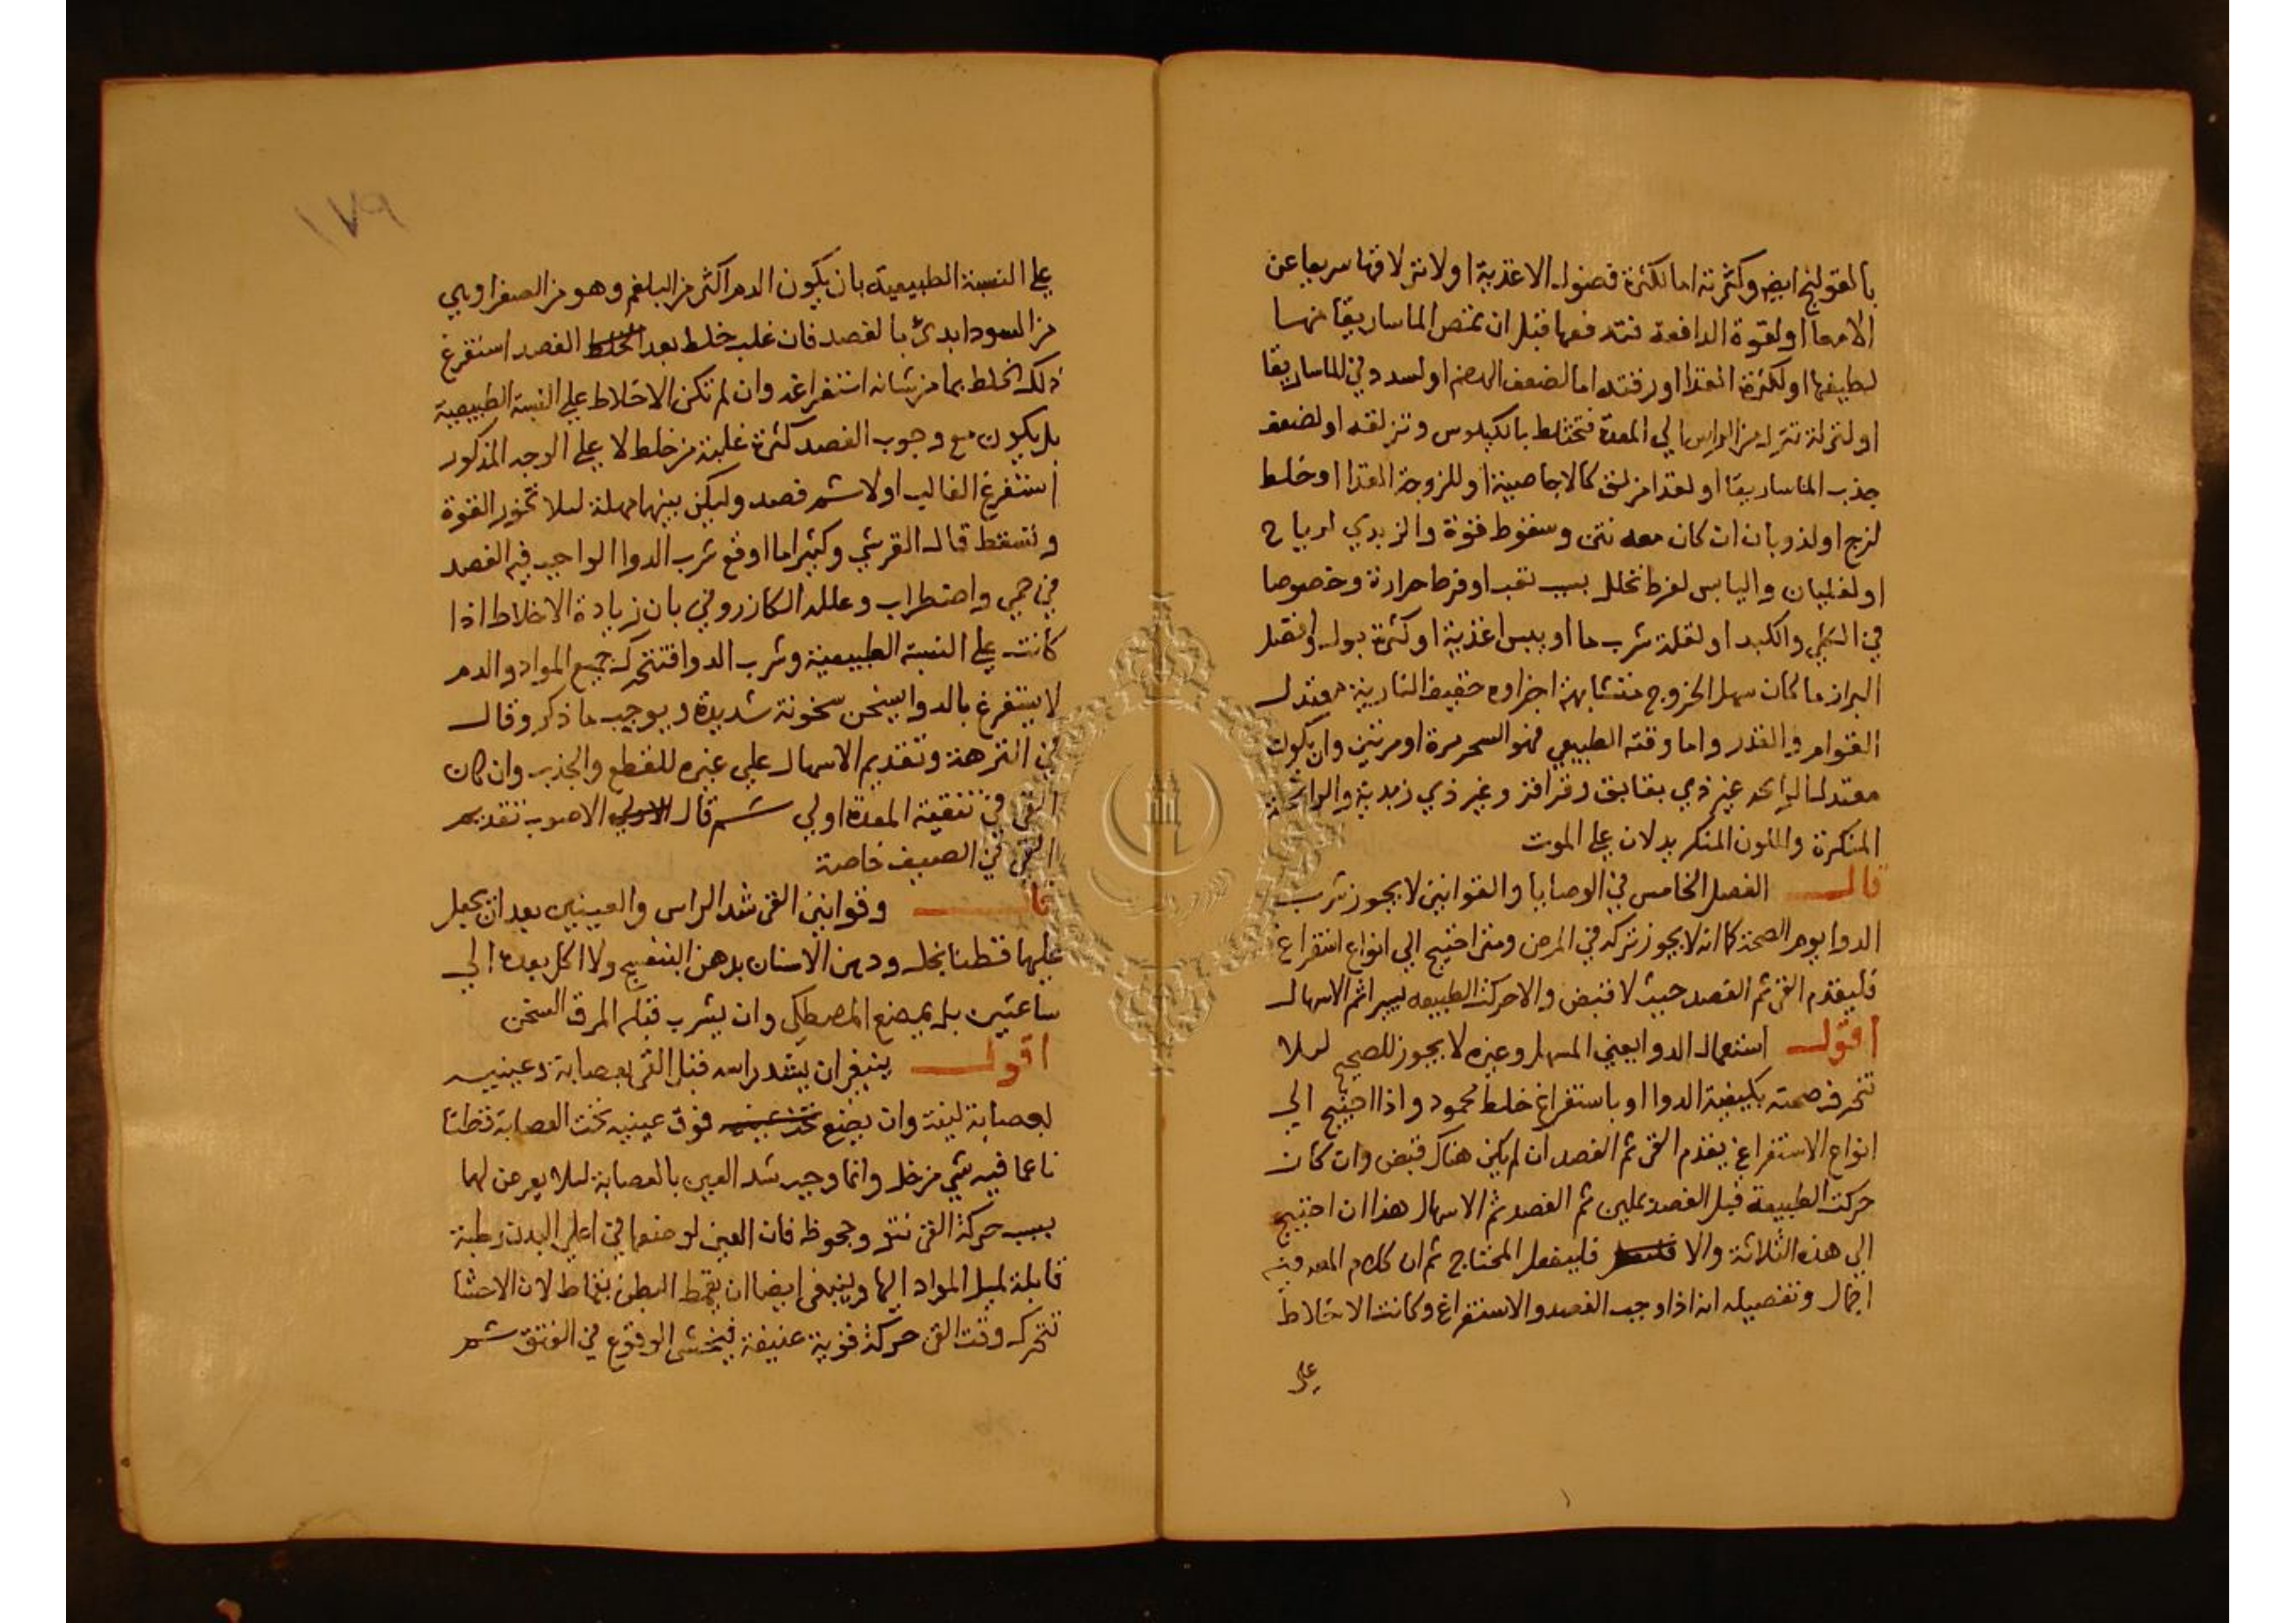 بالقولنج ايض وكثرته اما لكثرة فضول الاغذية اولانزلاقها سريعا عن
الامعا او لقوة الدافعة فتدفعها قبل ان تمتص الماساريقا منها
لطيفها او لكثرة الغذا او رقته اما لضعف الهضم او لسدد في الماساريقا
او لنزلة تنزل من الراس الي المعدة فتختلط بالكيلوس وتزلقه او لضعف
جذب الماساريقا او لغذا مزلق كالاجاصية او للزوجة الغذا او خلط
لزج او لذوبان ان كان معه نتن وسقوط قوة والزبدي لرياح
او لغليان واليابس لفرط تحلل بسبب تعب او فرط حرارة وخصوصا
في الكلي والكبد او لقلة شرب ما او يبس اغذية او كثرة بول وافضل
البراز ما كان سهل الخروج متشابهة اجزاوه خفيف النارية معتدل
القوام والقدر واما وقته الطبيعي فهو السحر مرة او مرتين وان يكون
معتدل الرايحة غير ذي بقابق وقراقر وغير ذي زبدية والرايحة
المنكرة واللون المنكر يدلان علي الموت
قال الفصل الخامس في الوصايا والقوانين لا يجوز شرب
الدوا يوم الصحة كما انه لا يجوز تركه في المرض ومتي احتيج الي انواع استفراغ
فليقدم القي ثم الفصد حيث لا قبض والا حركت الطبيعه يسيرا ثم الاسهال
اقول استعمال الدوا يعني المسهل وغيره لا يجوز للصحيح لئلا
تنحرف صحته بكيفية الدوا او باستفراغ خلط محمود واذا احتيج الي
انواع الاستفراغ يقدم القي ثم الفصد ان لم يكن هناك قبض وان كان
حركت الطبيعة قبل الفصد بملين ثم الفصد ثم الاسهال هذا ان احتيج
الي هذه الثلاثة والا فليفعل المحتاج ثم ان كلام المص فيه
اجمال وتفصيله انه اذا وجب الفصد والاستفراغ وكانت الاخلاط
علي
١٧٩
علي النسبة الطبيعية بان يكون الدم اكثر من البلغم وهو من الصفرا وهي
من السودا بدئ بالفصد فان غلب خلط بعد الفصد استفرغ
ذلك الخلط بما من شانه استفراغه وان لم تكن الاخلاط علي النسبة الطبيعية
بل يكون مع وجوب الفصد كثرة غلبة من خلط لا علي الوجه المذكور
استفرغ الغالب اولا ثم فصد وليكن بينهما مهلة لئلا تخور القوة
وتسقط قال القرشي وكثيرا ما اوقع شرب الدوا الواجب فيه الفصد
في حمي واضطراب وعلله الكازروني بان زيادة الاخلاط اذا
كانت علي النسبة الطبيعية وشرب الدوا فتتحرك جميع المواد والدم
لا يستفرغ بالدوا يسخن سخونة شديدة ويوجب ما ذكر وقال
في النزهة وتقديم الاسهال علي غيره للقطع والجذب وان كان
القي في تنقية المعدة اولي ثم قال الاصوب تقديم
القي في الصيف خاصة
قال وقوانين القي شد الراس والعينين بعد ان يجعل
عليها قطنا بخل ودهن الاسنان بدهن البنفسج ولا اكل بعده الي
ساعتين بل يمضغ المصطكي وان يشرب قبله المرق السخن
اقول ينبغي ان يشد راسه قبل القي بعصابة وعينيه
بعصابة لينة وان يضع فوق عينيه تحت العصابة قطنا
ناعما فيه شي من خل وانما وجب شد العين بالعصابة لئلا يعرض لها
بسبب حركة القي نتو وجحوظ فان العين لوضعها في اعلي البدن رطبة
قابلة لميل المواد اليها وينبغي ايضا ان يقمط البطن بقماط لان الاحشا
تتحرك وقت القي حركة قوية عنيفة فيخشي الوقوع في الفتق ثم